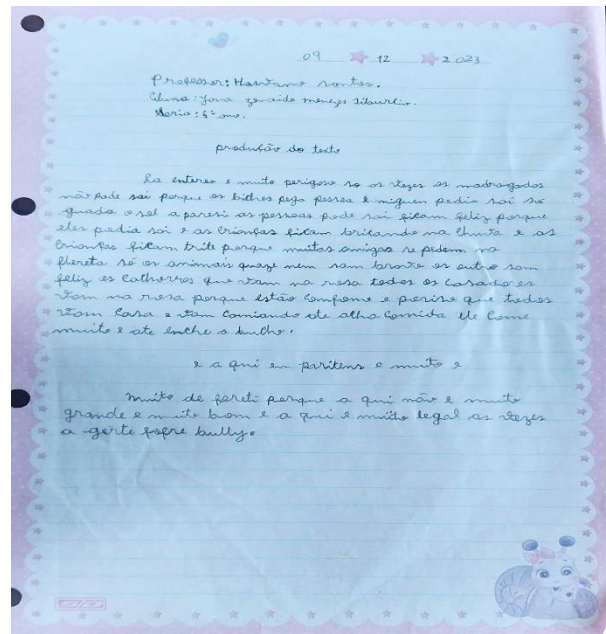 09 12 2023
Professor: Hontamo Santos.
Aluna: Yona Zenaide menezes Siburtio.
Seria: 6º ano.
produsão do texto
La enterior e muito perigoso so as vezes as madrogadas
não pode sai porque os bithes pega pessoa e miguen podia sai so
guado o sol a paresi as pessoas pode sai ficam feliz porque
eles podia sai e as crionsas ficam bricando na chuva e as
crionsas ficam trite porque muitas amigas se pedem na
floreta só os animais quaze nem sam bravo os outro sam
feliz os Cathorros que vam na rosa todos os casadores
vam na rosa porque estão comfome e periso que todos
vam casa e vam comiando ate alha comida ele come
muito e ate encho o bucho.
e a qui em paritens e muito e
muito de fereti porque a qui não e muito
grande e muito bom e a qui e muito legal as vezes
a gente fofre bully.